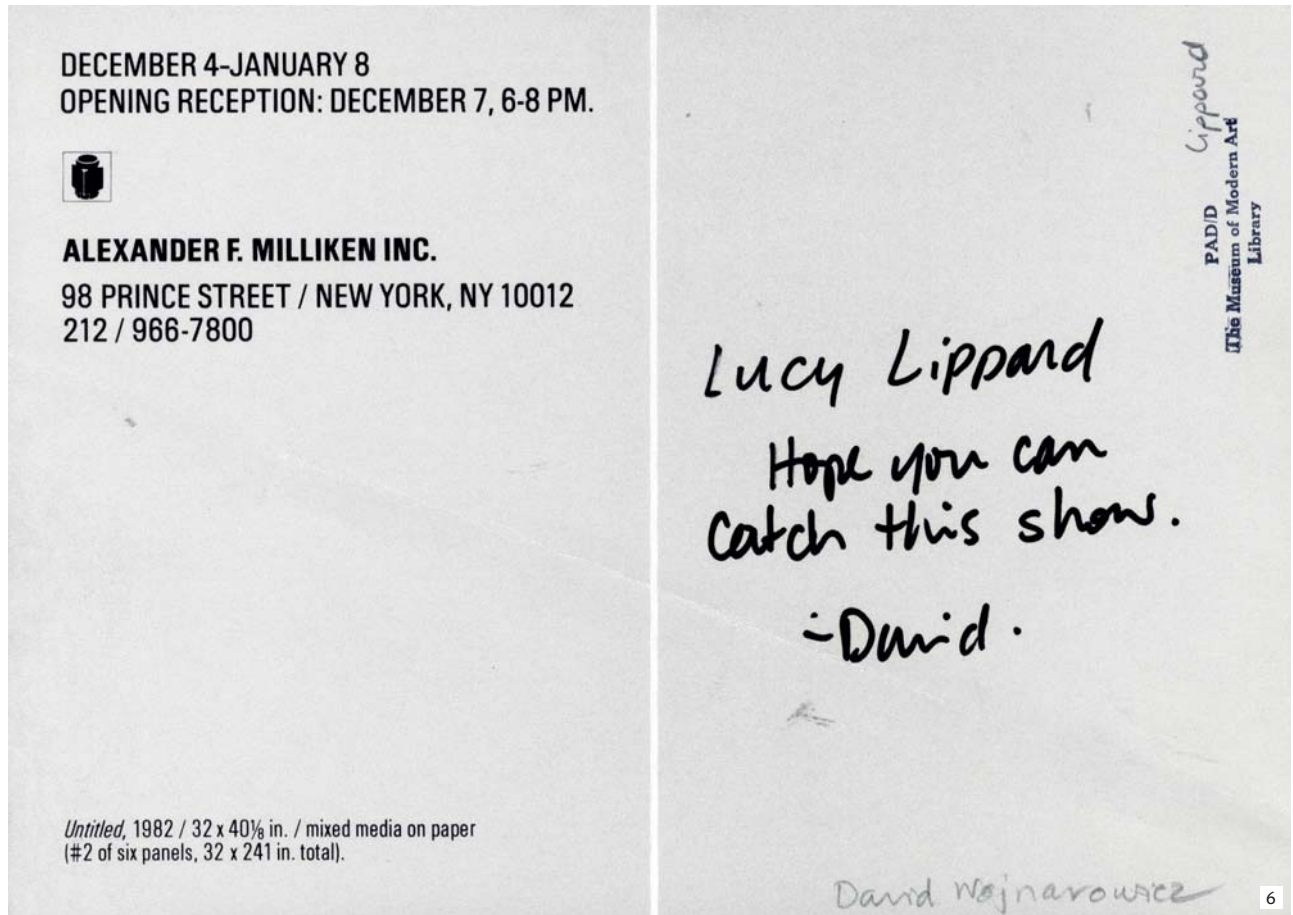 DECEMBER 4–JANUARY 8
OPENING RECEPTION: DECEMBER 7, 6-8 PM.
ALEXANDER F. MILLIKEN INC.
98 PRINCE STREET / NEW YORK, NY 10012
212 / 966-7800
Untitled, 1982 / 32 x 40⅛ in. / mixed media on paper
(#2 of six panels, 32 x 241 in. total).
Lippard
PAD/D
The Museum of Modern Art
Library
Lucy Lippard
Hope you can
catch this show.
-David.
David Wojnarowicz
6